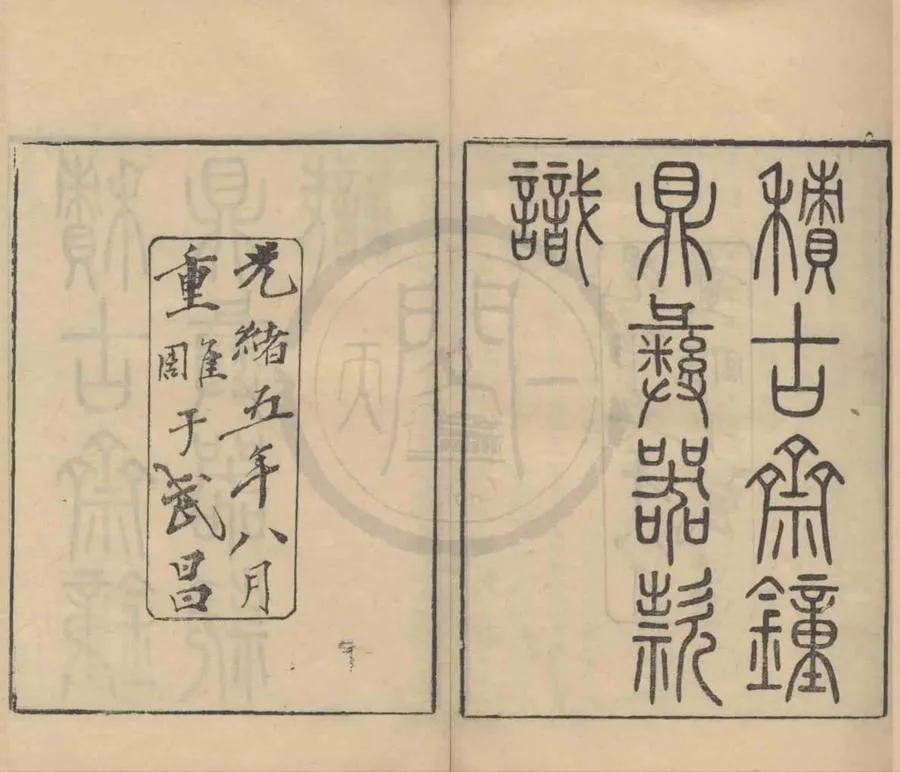 積古齋鐘
鼎彝器款
識
光緒五年八月
重雕于武昌
天一閣